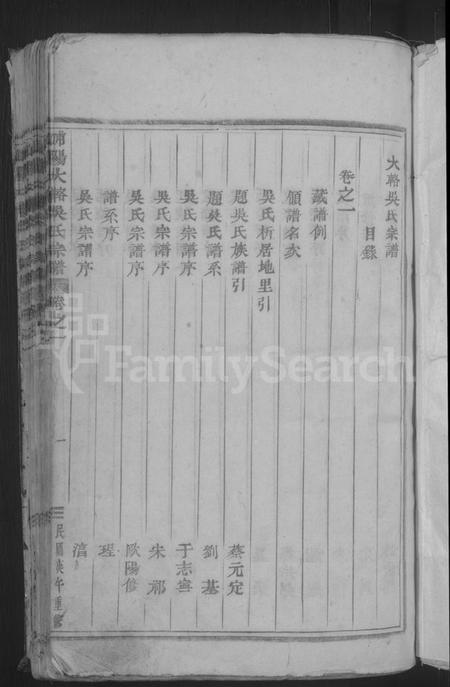 大輅吳氏宗譜
目錄
卷之一
藏譜例
領譜名次
吳氏析居地里引
題吳氏族譜引 蔡元定
題吳氏譜系 劉基
吳氏宗譜序 于志寧
吳氏宗譜序 朱 祁
吳氏宗譜序 歐陽修
譜系序 珵
吳氏宗譜序
浦陽大輅吳氏宗譜 卷之一 一 民國庚午重修
FamilySearch